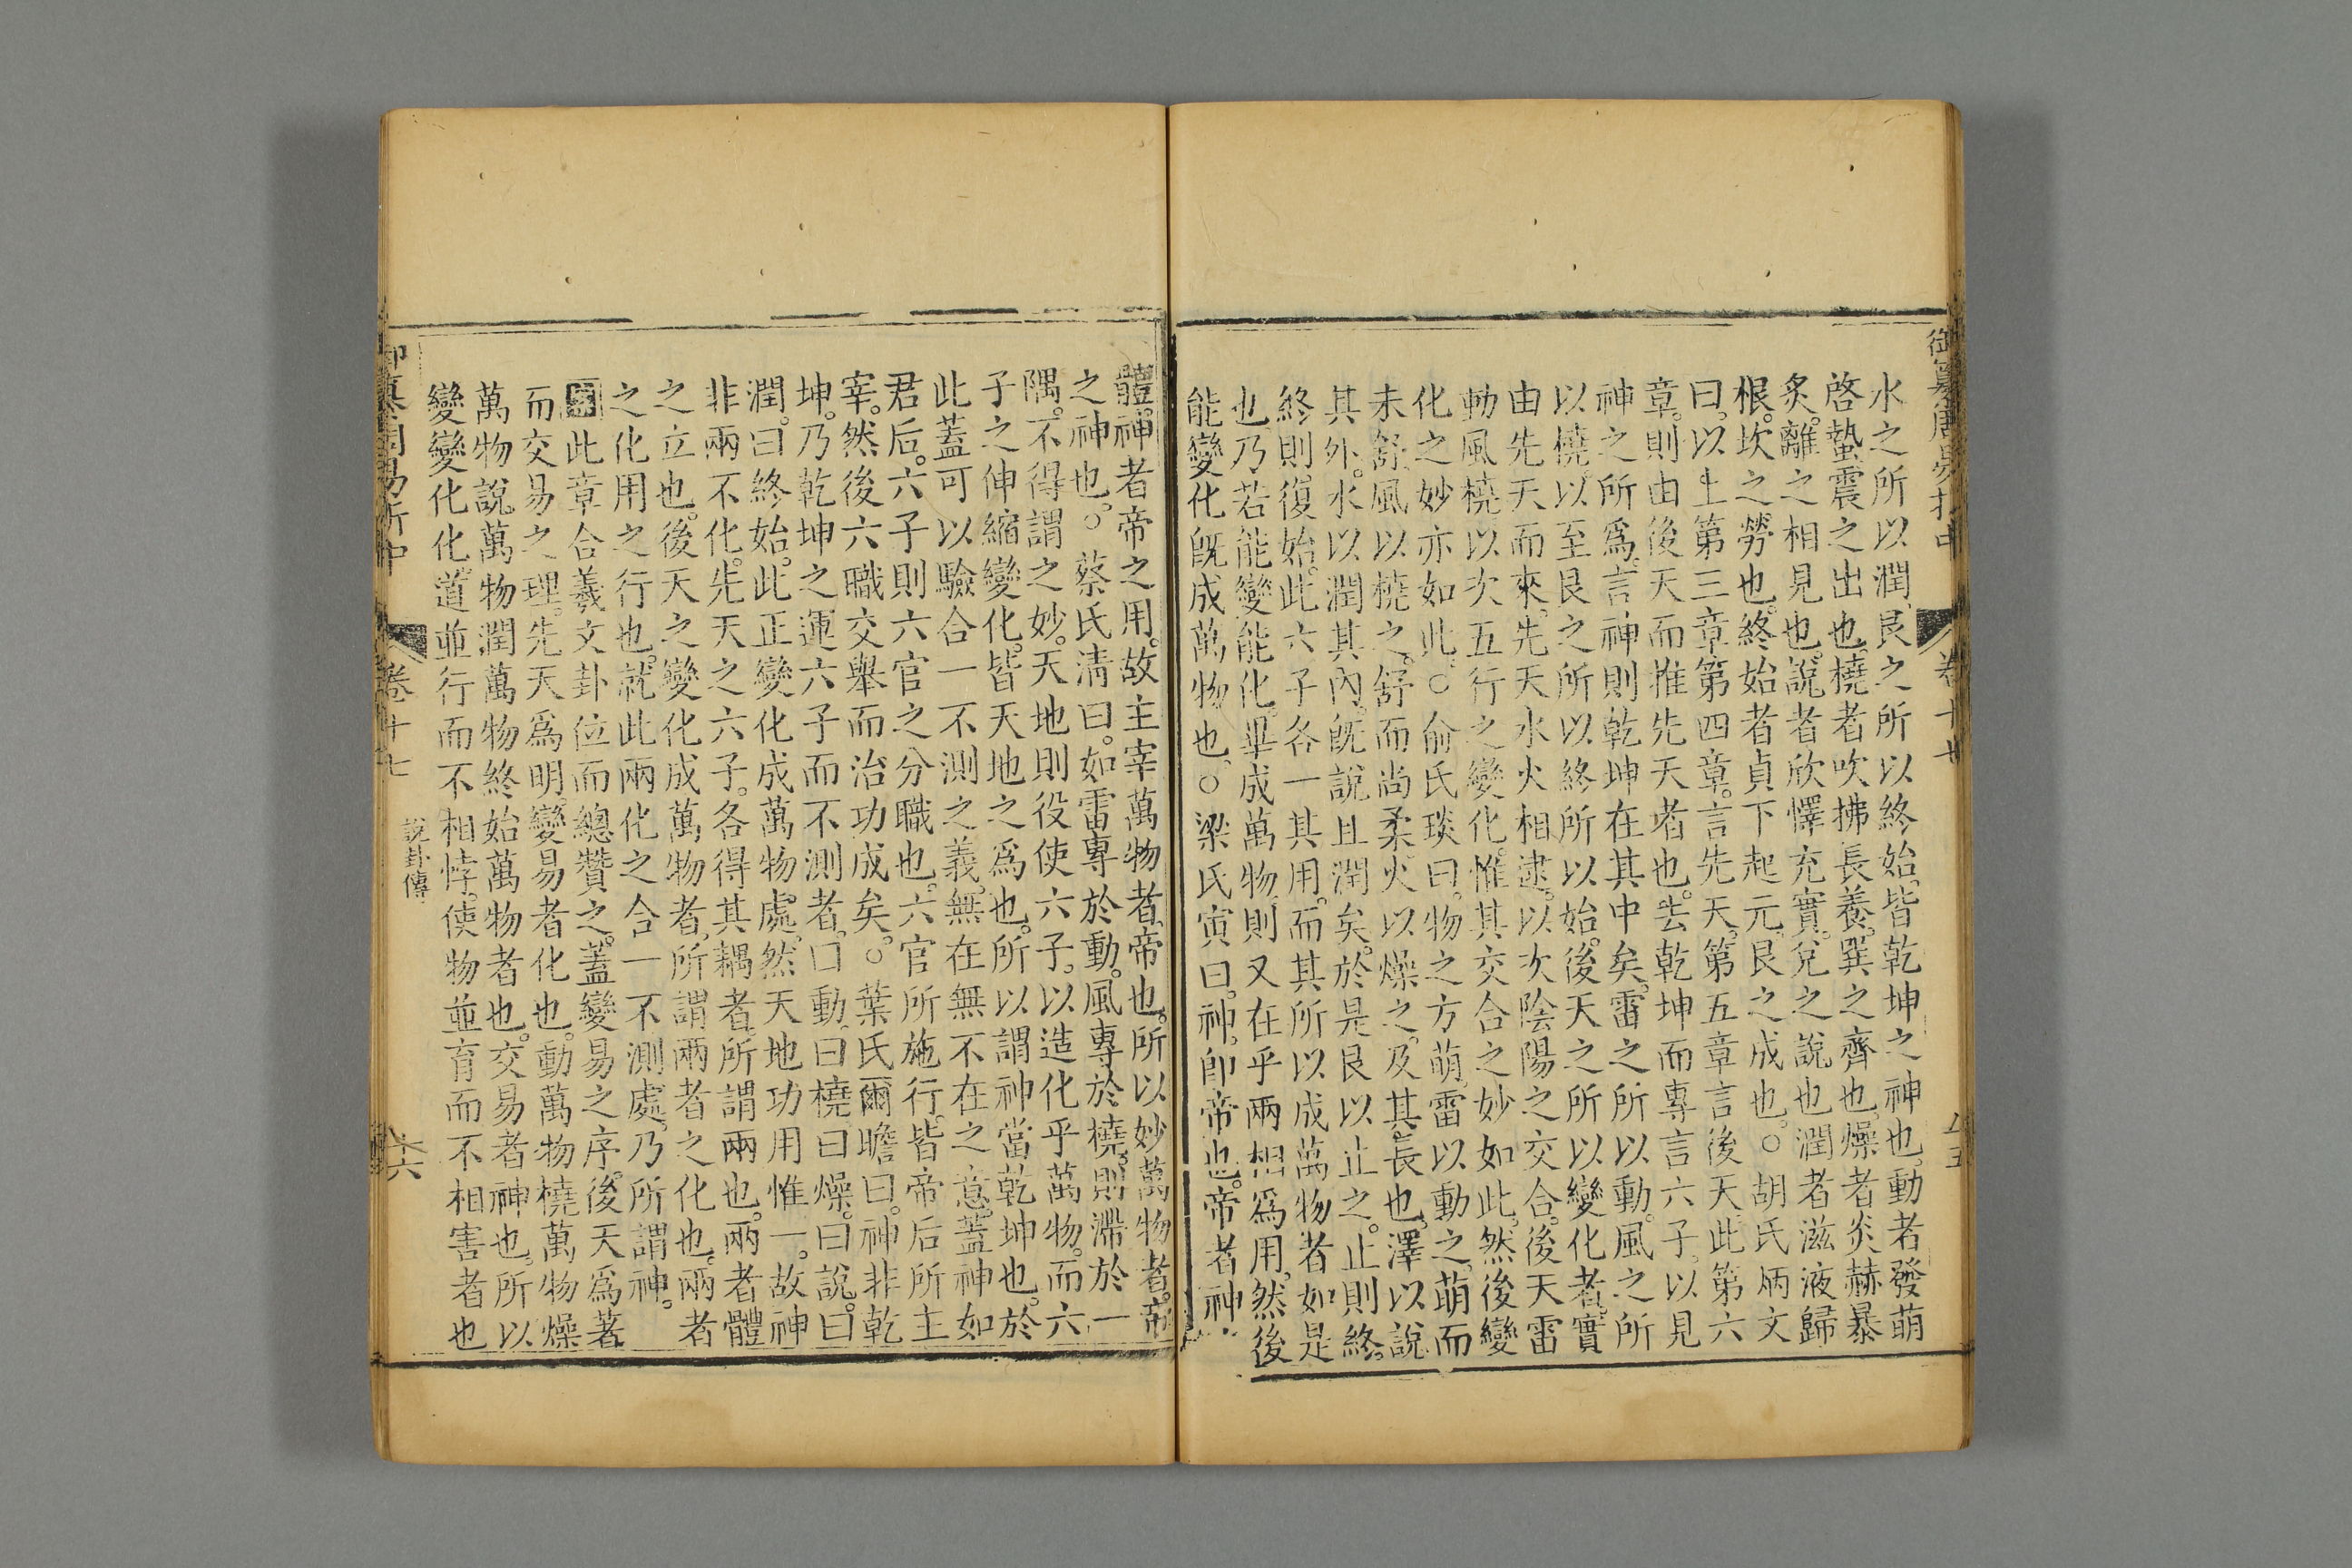 水之所以潤艮之所以終始皆乾坤之神也動者發萌
啓蟄震之出也橈者吹拂長養巽之齊也燥者炎赫暴
炙離之相見也說者欣懌充實兌之說也潤者滋液歸
根坎之勞也終始者貞下起元艮之成也○胡氏炳文
曰以上第三章第四章言先天第五章言後天此第六
章則由後天而推先天者也去乾坤而專言六子以見
神之所爲言神則乾坤在其中矣雷之所以動風之所
以橈以至艮之所以終所以始後天之所以變化者實
由先天而來先天水火相逮以次陰陽之交合後天雷
動風橈以次五行之變化惟其交合之妙如此然後變
化之妙亦如此○俞氏琰曰物之方萌雷以動之萌而
未舒風以橈之舒而尚柔火以燥之及其長也澤以說
其外水以潤其內旣說且潤矣於是艮以止之止則終
終則復始此六子各一其用而其所以成萬物者如是
也乃若能變能化畢成萬物則又在乎兩相爲用然後
能變化旣成萬物也○梁氏寅曰神卽帝也帝者神
卷十七
體神者帝之用故主宰萬物者帝也所以妙萬物者帝
之神也○蔡氏清曰如雷專於動風專於橈則滯於一
隅不得謂之妙天地則役使六子以造化乎萬物而六
子之伸縮變化皆天地之爲也所以謂神當乾坤也於
此蓋可以驗合一不測之義無在無不在之意蓋神如
君后六子則六官之分職也六官所施行皆帝后所主
宰然後六職交舉而治功成矣○葉氏爾瞻曰神非乾
坤乃乾坤之運六子而不測者曰動曰橈曰燥曰說曰
潤曰終始此正變化成萬物處然天地功用惟一故神
非兩不化先天之六子各得其耦者所謂兩也兩者體
之立也後天之變化成萬物者所謂兩者之化也兩者
之化用之行也就此兩化之合一不測處乃所謂神
此章合羲文卦位而總贊之蓋變易之序後天爲著
而交易之理先天爲明變易者化也動萬物橈萬物燥
萬物說萬物潤萬物終始萬物者也交易者神也所以
變變化化道並行而不相悖使物並育而不相害者也
卷十七
說卦傳